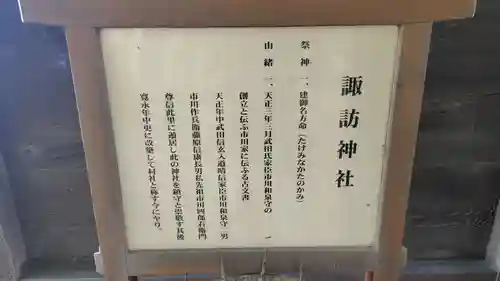 諏訪神社
祭神 一、建御名方命(たけみなかたのかみ)
由緒 一、天正三年三月武田氏家臣市川和泉守の
創立と伝ふ市川家に伝ふる古文書
天正年中武田信玄入道晴信家臣市川和泉守二男
市川作兵衛藤原信康長男私先祖市川四郎右衛門
尊信此里に遁居し此の神社を鎮守と崇敬す其後
寛永年中更に改築して村社と称す今にやり。